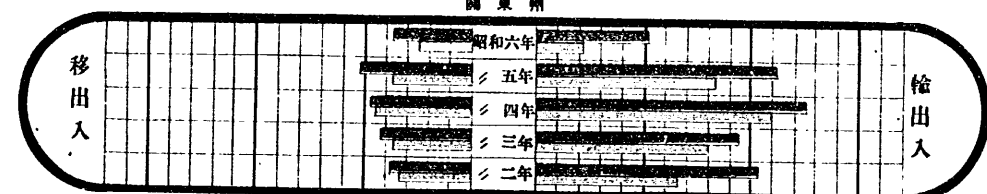 關東州
移出入
昭和六年
〃 五年
〃 四年
〃 三年
〃 二年
輸出入